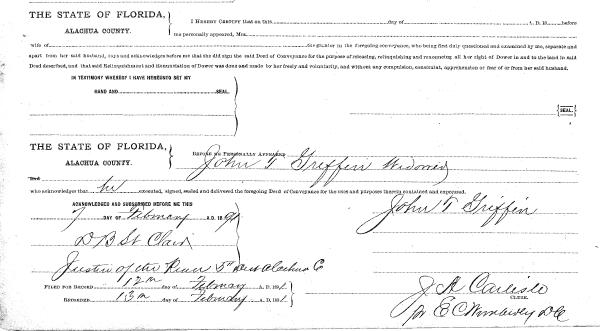 THE STATE OF FLORIDA,
ALACHUA COUNTY.
I HEREBY CERTIFY that on this day of A. D. 18 before
me personally appeared, Mrs.
wife of the grantor in the foregoing conveyance, who being first duly questioned and examined by me, separate and
apart from her said husband, says and acknowledges before me that she did sign the said Deed of Conveyance for the purpose of releasing, relinquishing and renouncing all her right of Dower in and to the land in said
Deed described, and that said Relinquishment and Renunciation of Dower was done and made by her freely and voluntarily, and without any compulsion, constraint, apprehension or fear of or from her said husband.
IN TESTIMONY WHEREOF I HAVE HEREUNTO SET MY
HAND AND SEAL.
SEAL.
THE STATE OF FLORIDA,
ALACHUA COUNTY.
BEFORE ME PERSONALLY APPEARED
John T Griffin Widower
who acknowledges that he executed, signed, sealed and delivered the foregoing Deed of Conveyance for the uses and purposes therein contained and expressed.
ACKNOWLEDGED AND SUBSCRIBED BEFORE ME THIS
7 DAY OF February A. D. 1891
John T Griffin
D B St Clair
Justice of the Peace 5th Dist Alachua C
FILED FOR RECORD 12th day of February A. D. 1891
RECORDED 13th day of February 1891
J A Carlisle
CLERK.
pr E C Wimberly D C